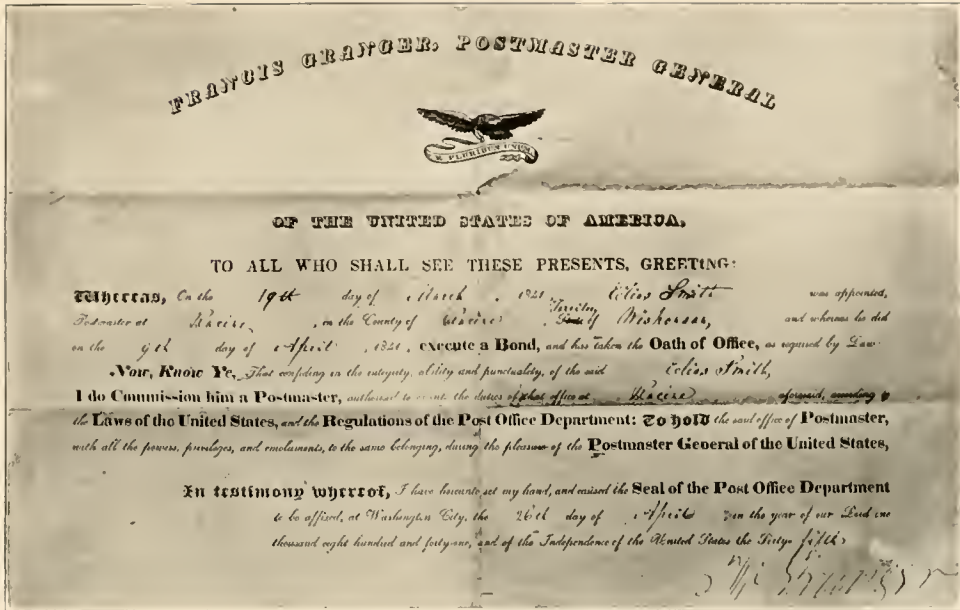 FRANCIS GRANGER, POSTMASTER GENERAL
E PLURIBUS UNUM
OF THE UNITED STATES OF AMERICA,
TO ALL WHO SHALL SEE THESE PRESENTS, GREETING:
Whereas, On the 19th day of March, 1841, Elias Smith was appointed,
Postmaster at Racine, in the County of Racine, Territory of Wiskonsan, and whereas he did
on the 9th day of April, 1841, execute a Bond, and has taken the Oath of Office, as required by Law
Now, Know Ye, That confiding in the integrity, ability and punctuality, of the said Elias Smith,
I do Commission him a Postmaster, authorized to execute the duties of that office at Racine aforesaid, according to
the Laws of the United States, and the Regulations of the Post Office Department: To Hold the said office of Postmaster,
with all the powers, privileges, and emoluments, to the same belonging, during the pleasure of the Postmaster General of the United States,
In testimony whereof, I have hereunto set my hand, and caused the Seal of the Post Office Department
to be affixed, at Washington City, the 26th day of April in the year of our Lord one
thousand eight hundred and forty-one, and of the Independence of the United States the Sixty-fifth